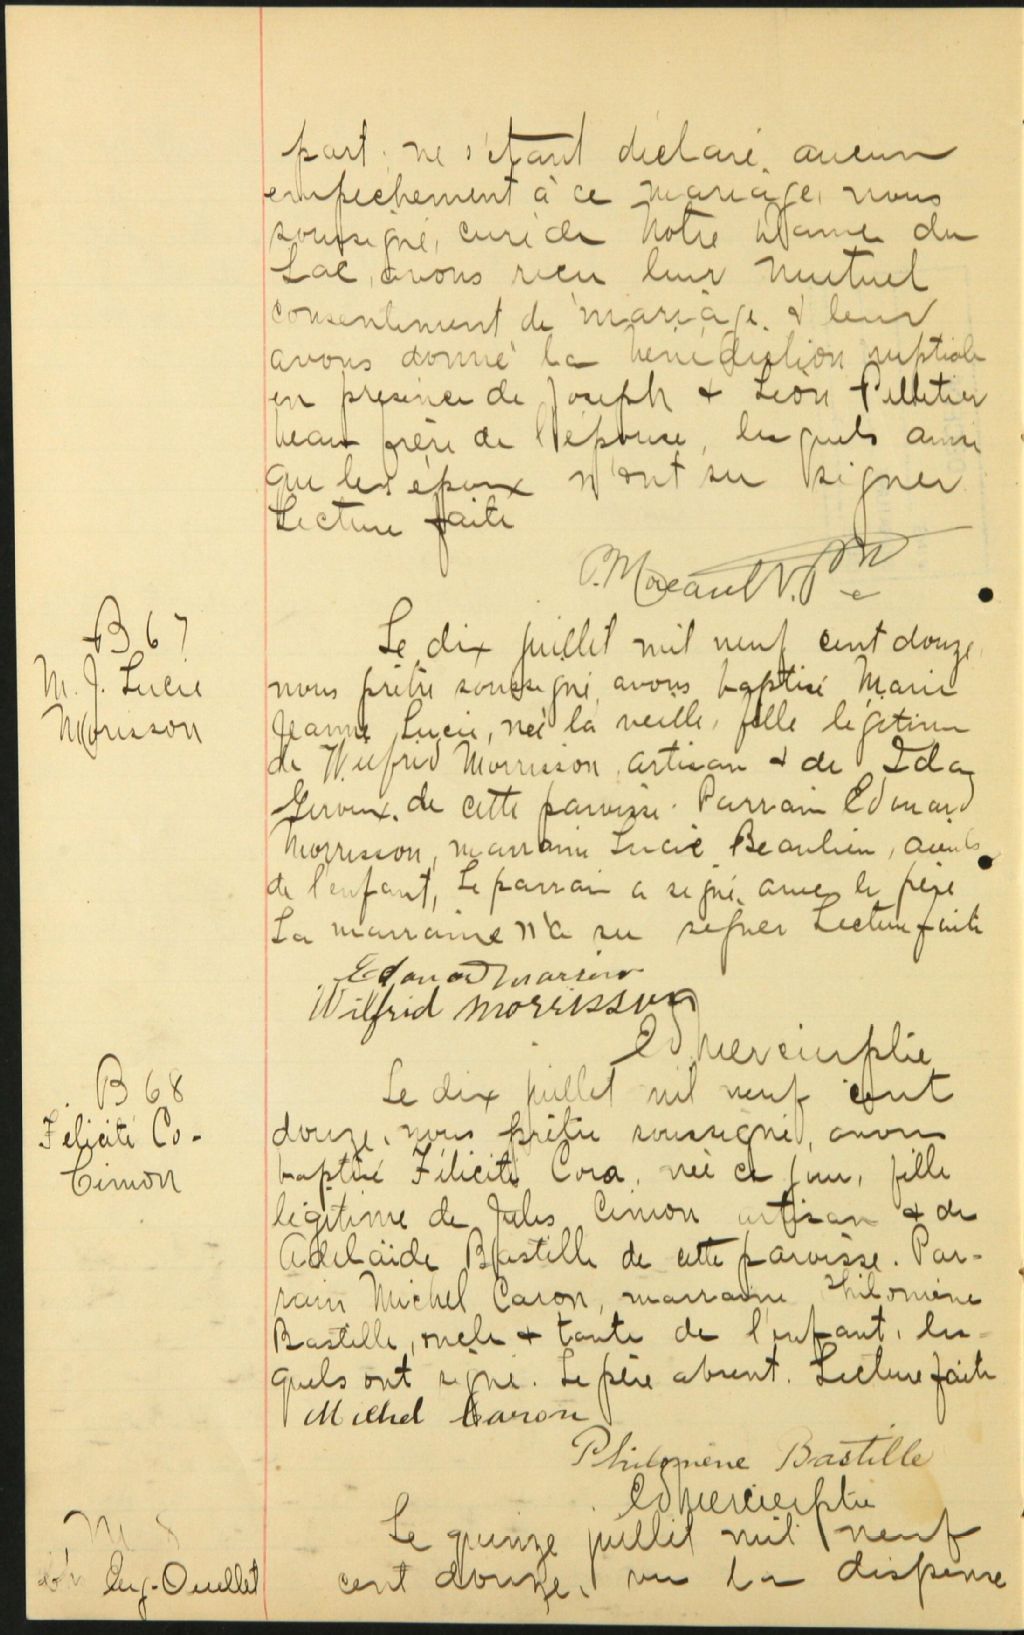 part; ne s'étant déclaré aucun
empêchement à ce mariage, nous
soussigné, curé de Notre Dame du
Lac, avons reçu leur mutuel
consentement de mariage & leur
avons donné la bénédiction nuptiale
en présence de Joseph & Léon Pelletier
beau frère de l'épouse, lesquels ainsi
que les époux n'ont su signer
Lecture faite
B 67
M. J. Lucie
Morisson
Le dix juillet mil neuf cent douze,
nous prêtre soussigné, avons baptisé Marie
Jeanne Lucie, née la veille, fille légitime
de Wilfrid Morrisson, artisan & de Ida
de cette paroisse. Parrain Edouard
Morrisson, marraine Lucie Beaulieu, aïeuls
de l'enfant, Le parrain a signé avec le père
La marraine n'a su signer Lecture faite
Wilfrid Morrisson
Ed Mercier ptre
B 68
Félicité Co-
Cimon
Le dix juillet mil neuf cent
douze, nous prêtre soussigné, avons
baptisé Félicité Cora, née ce jour, fille
légitime de Jules Cimon artisan & de
Adelaïde Bastille de cette paroisse. Par-
rain Michel Caron, marraine Philomène
Bastille, oncle & tante de l'enfant, les-
quels ont signé. Le père absent. Lecture faite
Michel Caron
Philomène Bastille
Ed Mercier ptre
M 8
Eug. Ouellet
Le quinze juillet mil neuf
cent douze, vu la dispense